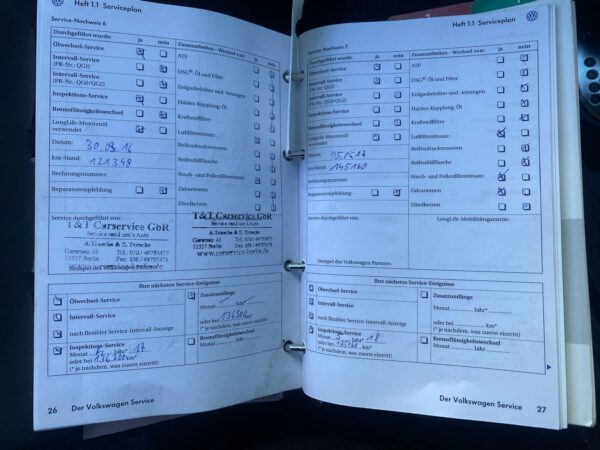 Heft 1.1 Serviceplan
Service-Nachweis 6
Durchgeführt wurde:
ja
nein
Zusatzarbeiten - Wechsel von:
ja
nein
Ölwechsel-Service
ATF
Intervall-Service
(PR-Nr.: QG1)
DSG®: Öl und Filter
Intervall-Service
(PR-Nr.: QG0/QG2)
Erdgasbehälter und -leitungen
Inspektions-Service
Haldex-Kupplung: Öl
Bremsflüssigkeitswechsel
Kraftstofffilter
LongLife-Motorenöl
verwendet
Luftfiltereinsatz
Datum:
Reifendrucksensoren
km-Stand:
121348
Reifenfüllflasche
Rechnungsnummer:
Staub- und Pollenfiltereinsatz
Reparaturempfehlung
Zahnriemen
Zündkerzen
Service durchgeführt von:
T&T Carservice GbR
Service rund um's Auto
A. Tresche & S. Tresche
12557 Berlin
www.carservice-berlin.de
T&T Carservice GbR
Service rund um's Auto
A. Tresche & S. Tresche
12557 Berlin
www.carservice-berlin.de
Ihre nächsten Service-Ereignisse
Ölwechsel-Service
Zusatzumfänge
Monat Jahr*
Intervall-Service
oder bei km*
(* je nachdem, was zuerst eintritt)
nach flexibler Service-Intervall-Anzeige
Inspektions-Service
Monat Jahr* 17
oder bei km*
(* je nachdem, was zuerst eintritt)
Bremsflüssigkeitswechsel
Monat Jahr
26 Der Volkswagen Service
Heft 1.1 Serviceplan
Service-Nachweis 7
Durchgeführt wurde:
ja
nein
Zusatzarbeiten - Wechsel von:
ja
nein
Ölwechsel-Service
ATF
Intervall-Service
(PR-Nr.: QG1)
DSG®: Öl und Filter
Intervall-Service
(PR-Nr.: QG0/QG2)
Erdgasbehälter und -leitungen
Inspektions-Service
Haldex-Kupplung: Öl
Bremsflüssigkeitswechsel
Kraftstofffilter
LongLife-Motorenöl
verwendet
Luftfiltereinsatz
Datum:
05.05.17
Reifendrucksensoren
km-Stand:
145160
Reifenfüllflasche
Rechnungsnummer:
Staub- und Pollenfiltereinsatz
Reparaturempfehlung
Zahnriemen
Zündkerzen
Service durchgeführt von:
LongLife-Mobilitätsgarantie:
Stempel des Volkswagen Partners
Ihre nächsten Service-Ereignisse
Ölwechsel-Service
Zusatzumfänge
Monat Jahr*
Intervall-Service
oder bei km*
(* je nachdem, was zuerst eintritt)
nach flexibler Service-Intervall-Anzeige
Inspektions-Service
Monat Jahr* 18
oder bei km*
(* je nachdem, was zuerst eintritt)
Bremsflüssigkeitswechsel
Monat Jahr
Der Volkswagen Service 27